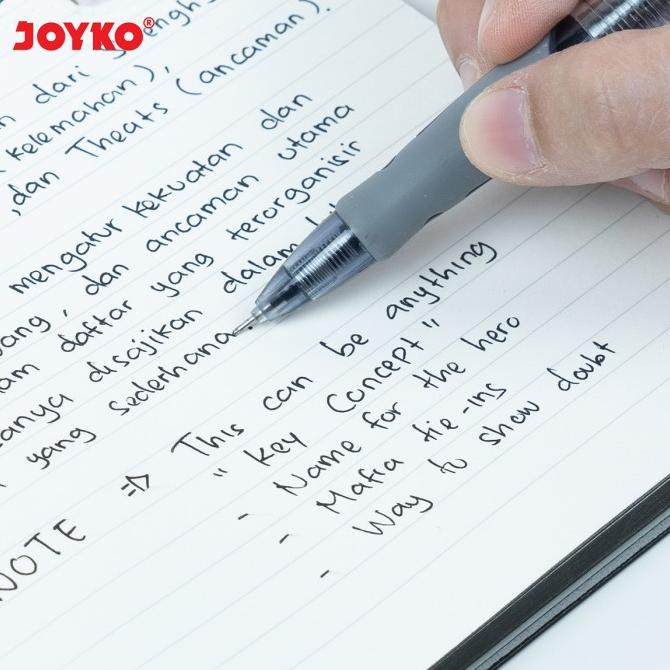 JOYKO®
dari
kelemahan),
,dan Theats (ancaman).
mengatur kekuatan dan
, dan ancaman utama
daftar yang terorganisir
disajikan dalam
yang sederhana
NOTE => This can be anything
" Key Concept "
- Name for the hero
- Mafia tie-ins
- Way to show doubt